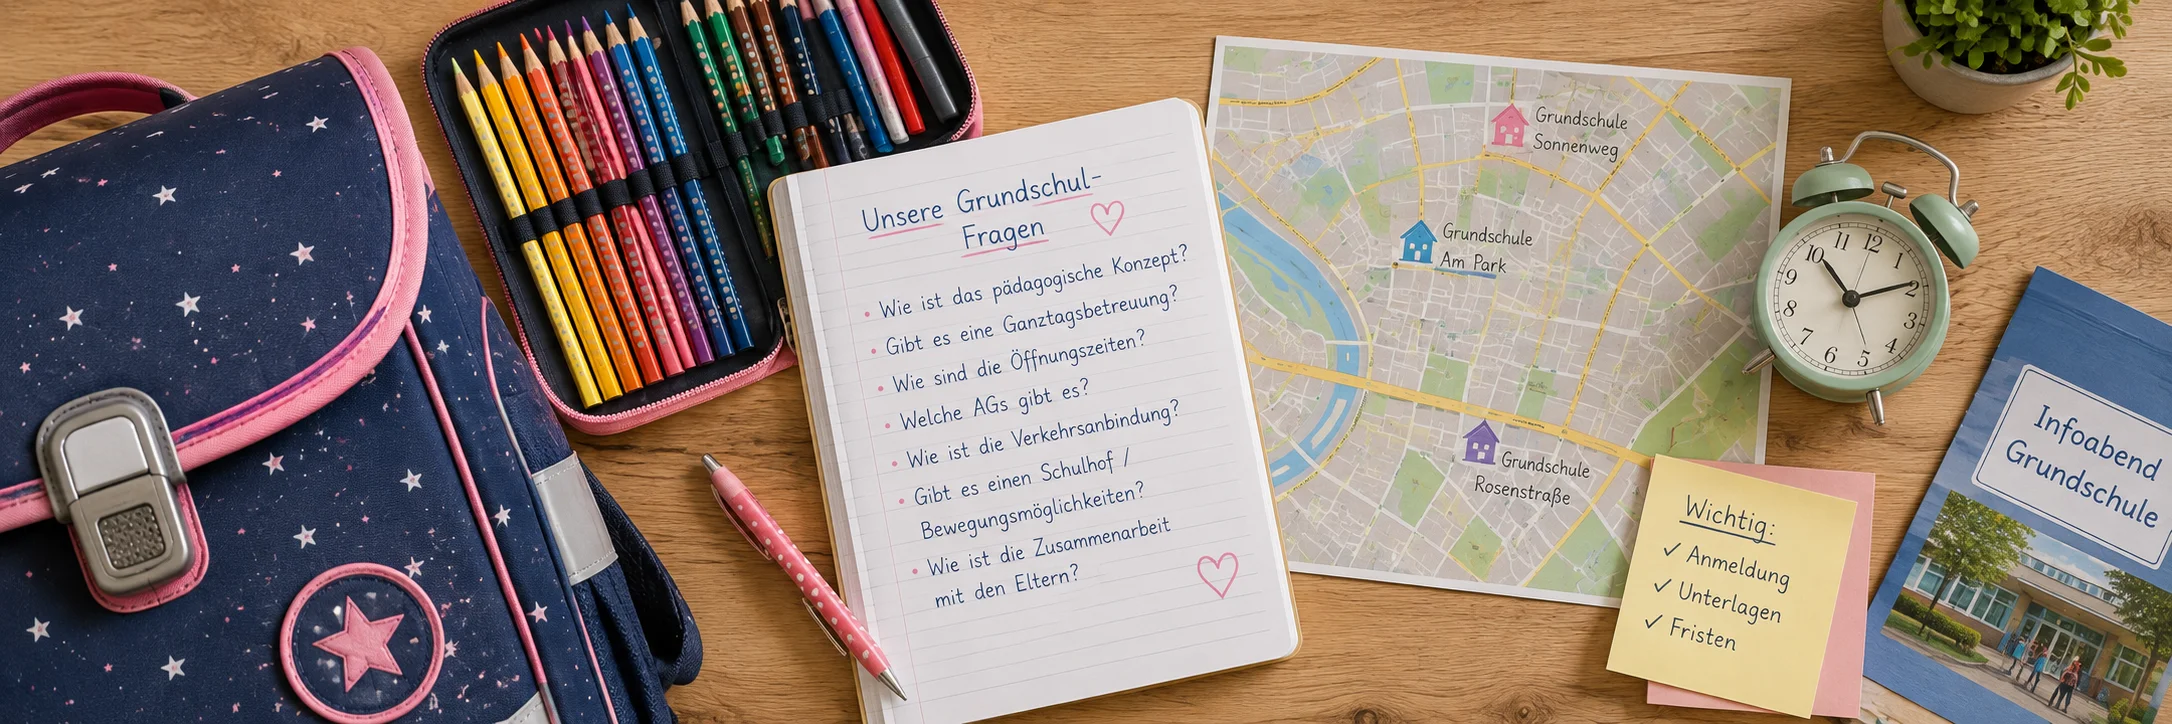 Unsere Grundschul-
Fragen
• Wie ist das pädagogische Konzept?
• Gibt es eine Ganztagsbetreuung?
• Wie sind die Öffnungszeiten?
• Welche AGs gibt es?
• Wie ist die Verkehrsanbindung?
• Gibt es einen Schulhof /
Bewegungsmöglichkeiten?
• Wie ist die Zusammenarbeit
mit den Eltern?
Grundschule
Sonnenweg
Grundschule
Am Park
Grundschule
Rosenstraße
12
1
2
3
4
5
6
7
8
9
10
11
Wichtig:
✓ Anmeldung
✓ Unterlagen
✓ Fristen
Infoabend
Grundschule